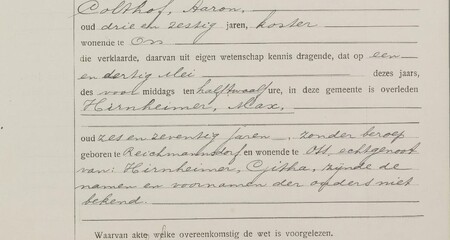 Polthof, Aaron,
oud drie en zestig jaren, koster
wonende te Oss
die verklaarde, daarvan uit eigen wetenschap kennis dragende, dat op een
en dertig Mei dezes jaars,
des voor middags ten half twaalf ure, in deze gemeente is overleden
Hirnheimer, Max,
oud zes en zeventig jaren, zonder beroep
geboren te Reichmannsdorf en wonende te Oss, echtgenoot
van: Hirnheimer, Githa, zijnde de
namen en voornamen der ouders niet
bekend.
Waarvan akte, welke overeenkomstig de wet is voorgelezen.